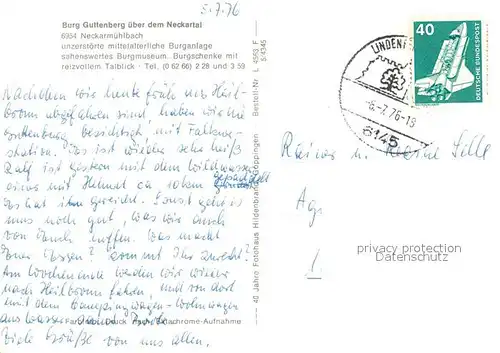 5.7.76
Burg Guttenberg über dem Neckartal
6954 Neckarmühlbach
unzerstörte mittelalterliche Burganlage
sehenswertes Burgmuseum. Burgschenke mit
reizvollem Talblick · Tel. (0 62 66) 2 28 und 3 59
Nachdem wir heute früh aus Heil-
bronn abgefahren sind, haben wir die
Guttenburg besichtigt mit Falken-
station. Es ist wieder sehr heiß
Ralf ist gestern mit dem Wildwasser
mit Helmut ca 10 km gepaddelt
Es hat ihm gereicht. Sonst geht es
uns noch gut, was wir auch
von Euch hoffen. Was macht
Euer Essen? Kommt Ihr zurecht?
Am Wochenende werden wir wieder
nach Heilbronn fahren, und von dort
mit dem Campingwagen-Wohnwagen
ans Wasser
Viele Grüße von uns allen.
Aufnahme
40 Jahre Fotohaus Hildenbrand Göppingen
Bestell-Nr. L 4563 F
5/4345
LINDENFELS
-6.-7.76-18
6145
40
DEUTSCHE BUNDESPOST
Rainer u.
privacy protection
Datenschutz